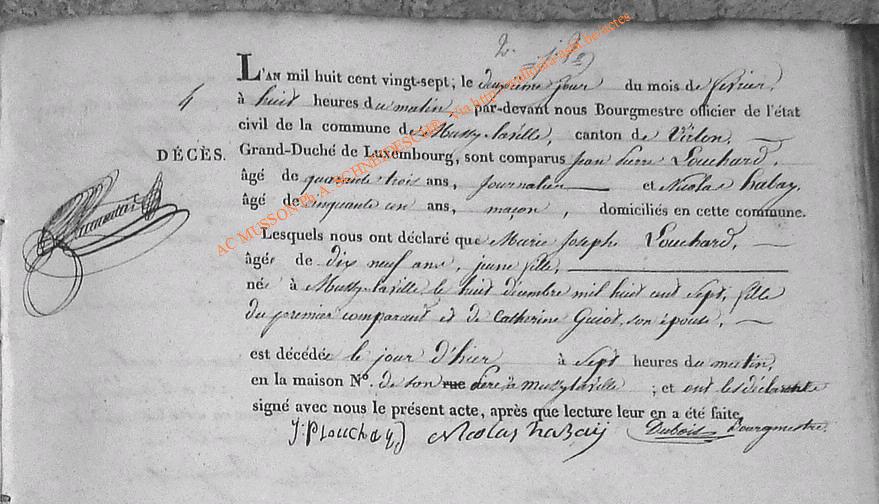 4
L'AN mil huit cent vingt-sept, le deuxième jour du mois de février,
à huit heures du matin, par-devant nous Bourgmestre officier de l'état
civil de la commune de Mussy-la-ville, canton de Virton,
DÉCÈS.
Grand-Duché de Luxembourg, sont comparus Jean Pierre Louchard,
âgé de quarante trois ans, journalier et Nicolas habay,
âgé de cinquante un ans, maçon, domiciliés en cette commune.
Lesquels nous ont déclaré que Marie Joseph Louchard,
âgée de dix neuf ans, jeune fille,
née à Mussy-la-ville le huit décembre mil huit cent sept, fille
du premier comparant et de Catherine Guiot, son épouse,
est décédée le jour d'hier à sept heures du matin,
en la maison N°. de son rue père à Mussy-la-ville ; et ont les déclarants
signé avec nous le présent acte, après que lecture leur en a été faite.
J: P Louchard Nicolas habay Dubois Bourgmestre.
AC MUSSON Ph. A. SCHNEIDESCHER